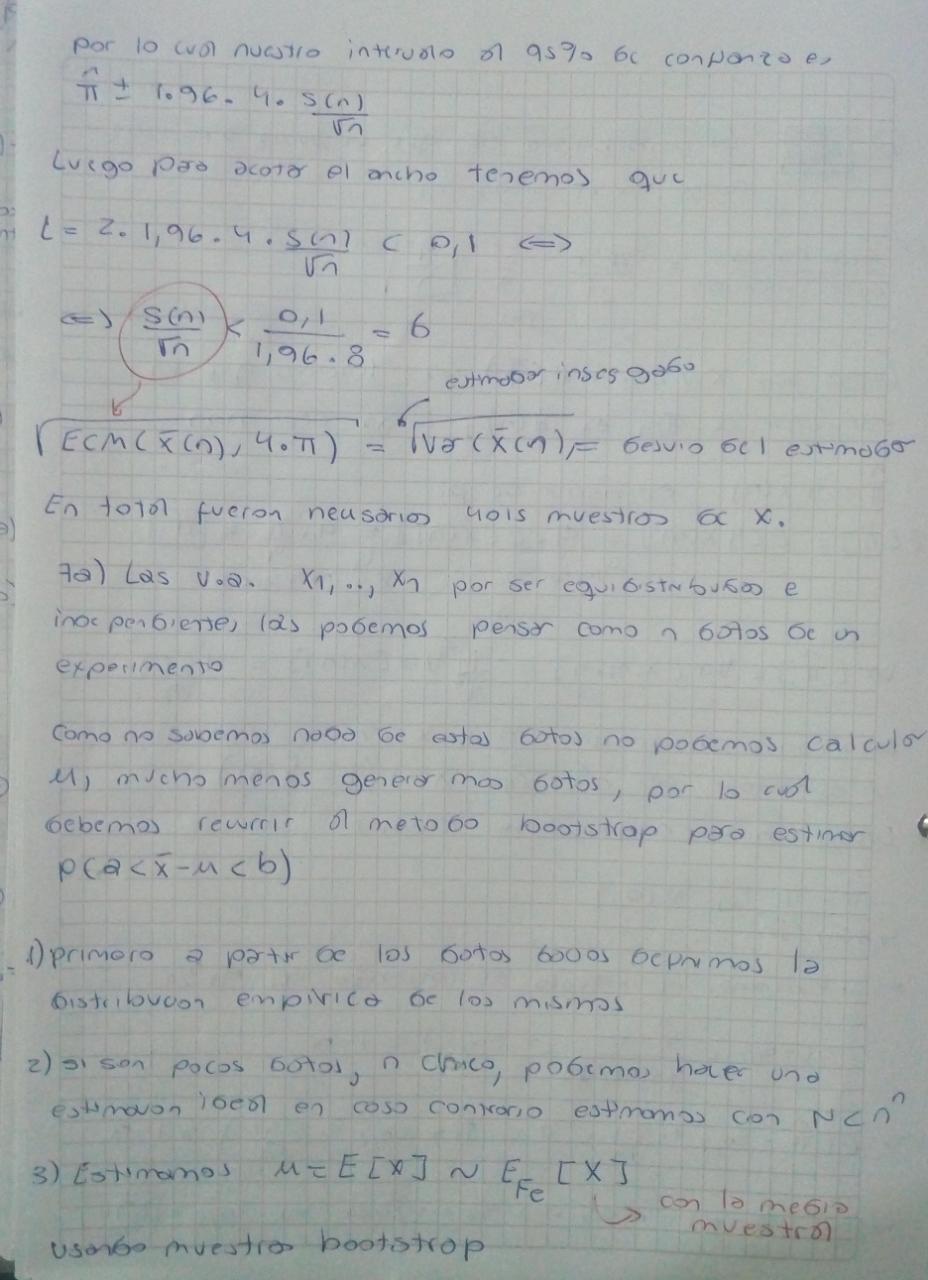 por lo cual nuestro intervalo al 95% de confianza es
π̂ ± 1.96 . 4 . S(n)/√n
Luego para acotar el ancho tenemos que
L = 2 . 1,96 . 4 . S(n)/√n < 0,1 <=>
<=> S(n)/√n < 0,1/(1,96 . 8) = 6
estimador insesgado
√ECM(x̄(n), 4.π) = √Var(x̄(n)) = desvio del estimador
En total fueron necesarios muestras de x.
7a) Las v.a. X1, .., Xn por ser equidistribuidas e
independientes, las podemos pensar como n datos de un
experimento
Como no sabemos nada de estos datos no podemos calcular
μ, mucho menos generar mas datos, por lo cual
debemos recurrir al metodo bootstrap para estimar
p(a < x̄ - μ < b)
1) primero a partir de los datos dados definimos la
distribucion empirica de los mismos
2) si son pocos datos, n chico, podemos hacer una
estimacion ideal en caso contrario estimamos con N < nⁿ
3) Estimamos μ = E[X] ~ E_Fe [X]
con la media
muestral
usando muestras bootstrap